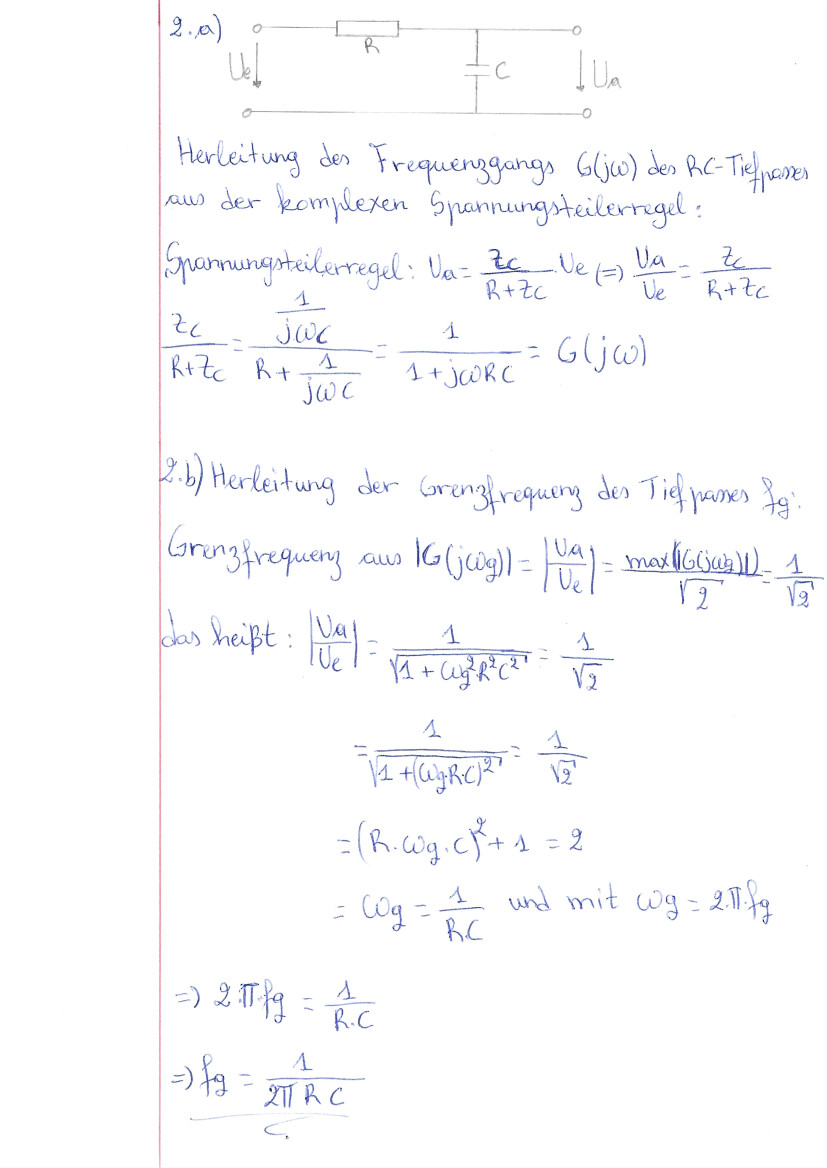 2.a)
R
Ue
C
Ua
Herleitung des Frequenzgangs G(jω) des RC-Tiefpasses
aus der komplexen Spannungsteilerregel:
Spannungsteilerregel: Ua = Zc/(R+Zc) · Ue (=) Ua/Ue = Zc/(R+Zc)
Zc/(R+Zc) = (1/(jωC))/(R + 1/(jωC)) = 1/(1+jωRC) = G(jω)
2.b) Herleitung der Grenzfrequenz des Tiefpasses fg:
Grenzfrequenz aus |G(jωg)| = |Ua/Ue| = max(|G(jωg)|)/√2 = 1/√2
das heißt: |Ua/Ue| = 1/√(1+ωg²R²C²) = 1/√2
= 1/√(1+(ωg·R·C)²) = 1/√2
= (R·ωg·C)² + 1 = 2
= ωg = 1/(R·C) und mit ωg = 2·π·fg
=) 2·π·fg = 1/(R·C)
=) fg = 1/(2π R C)